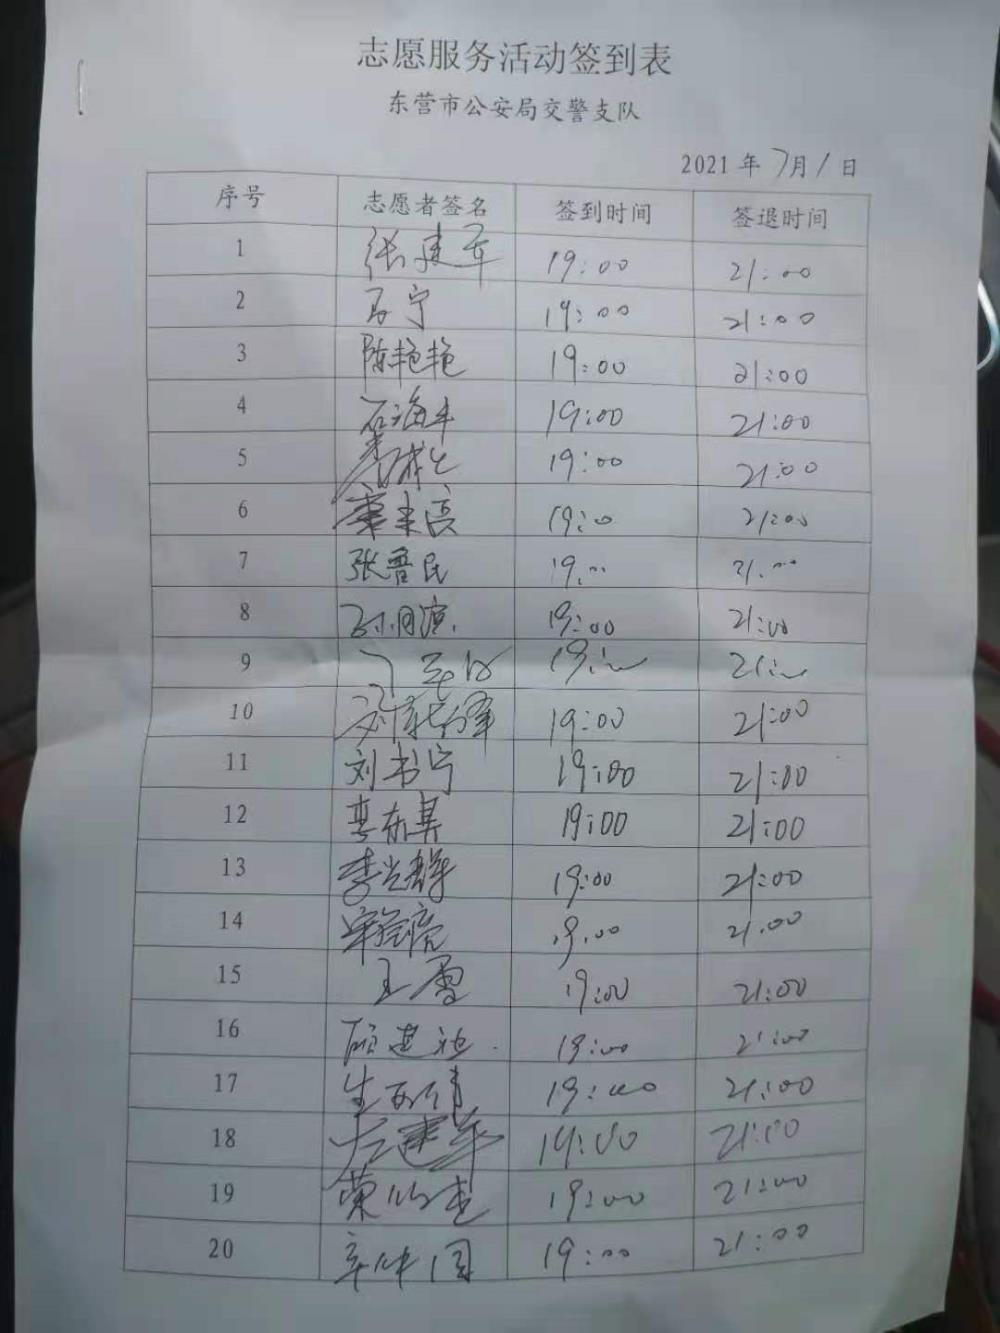 志愿服务活动签到表
东营市公安局交警支队
2021 年 7月1日
序号 志愿者签名 签到时间 签退时间
1 张建军 19:00 21:00
2 石宁 19:00 21:00
3 陈艳艳 19:00 21:00
4 石海丰 19:00 21:00
5 19:00 21:00
6 19:00 21:00
7 张晋民 19:00 21:00
8 19:00 21:00
9 19:00 21:00
10 19:00 21:00
11 刘书宁 19:00 21:00
12 19:00 21:00
13 李光群 19:00 21:00
14 19:00 21:00
15 王雪 19:00 21:00
16 19:00 21:00
17 19:00 21:00
18 左建军 19:00 21:00
19 19:00 21:00
20 19:00 21:00